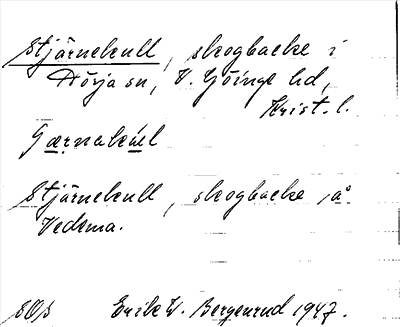 Stjärnekull, skogbacke i
Rövja sn, V. Göinge hd,
Krist. l.
Stjärnekull, skogbacke, å
Vedema.
Erik W. Bergenrud 1947.